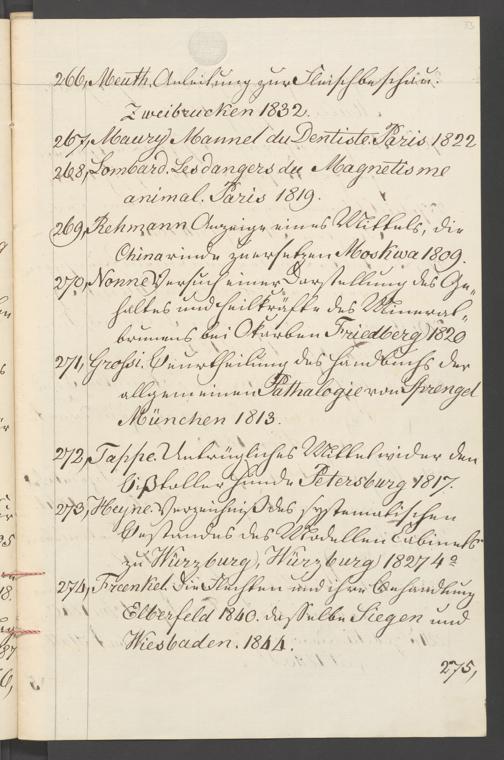 33
266, Meuth. Anleitung zur Fleischbeschau.
Zweibrucken 1832.
267, Maury Mannel du Dentiste. Paris 1822
268, Lombard. Les dangers du Magnetisme
animal. Paris 1819.
269, Rehmann Anzeige eines Mittels, die
Chinarinde zu ersetzen Moskwa 1809.
270, Nonne Versuch einer Darstellung des Ge„
haltes und Heilkräfte des Mineral„
brunnens bei Okarben Friedberg 1820
271, Grossi. Beurtheilung des Handbuchs der
allgemeinen Pathalogie von Sprengel
München 1813.
272, Tappe. Untrügliches Mittel wider den
Biß toller Hunde Petersburg 1817.
273, Heyne. Verzeichniß des systematischen
Bestandes des Modellen Cabinets
zu Würzburg), Würzburg) 1827 4º
274, Fraenkel. Die Flechten und ihre Behandlung
Elberfeld 1840. dasselbe Siegen und
Wiesbaden. 1844.
275,